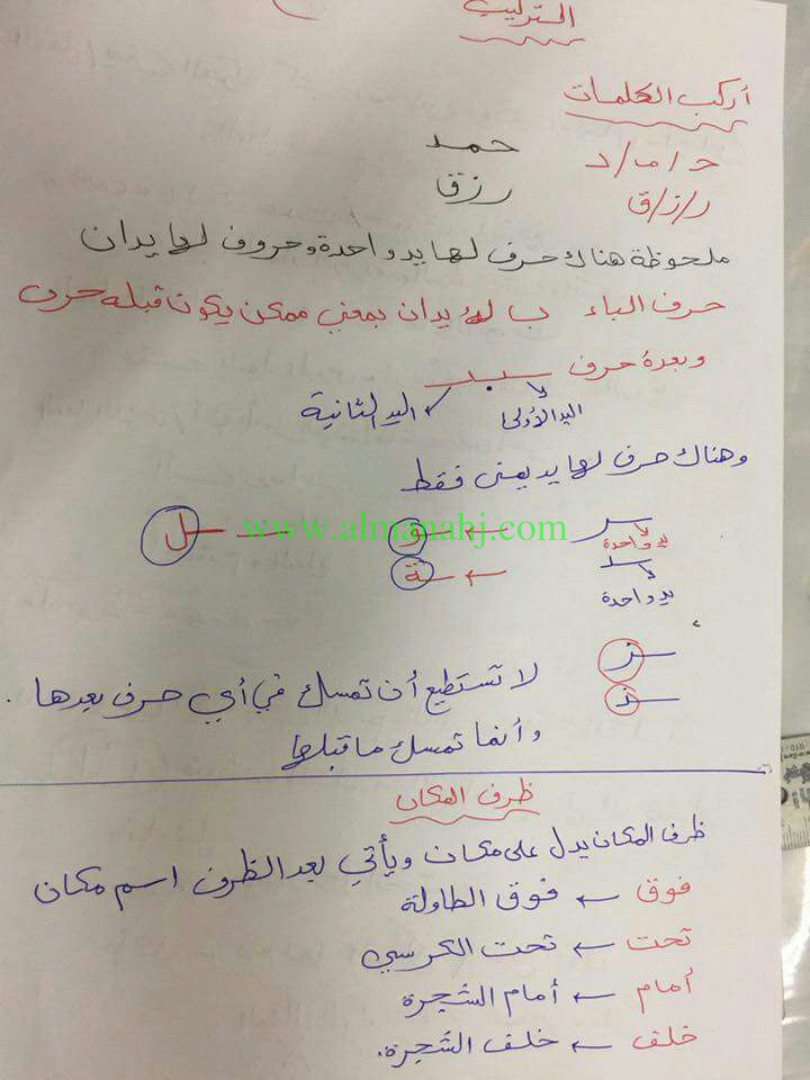 التركيب
أركب الكلمات
ح / م / د حمد
ر / ز / ق رزق
ملحوظة هناك حرف لها يد واحدة وحروف لها يدان
حرف الباء ب له يدان بمعنى ممكن يكون قبله حرف
وبعدة حرف ـبـ
اليد الأولى اليد الثانية
وهناك حرف لها يد يمنى فقط
ـر ← ـو ـل
يد واحدة
www.almanahj.com
ـد ← ـة
يد واحدة
ـز
ـذ
لا تستطيع أن تمسك في أي حرف بعدها
وأنما تمسك ما قبلها
ظرف المكان
ظرف المكان يدل على مكان ويأتي بعد الظرف اسم مكان
فوق ← فوق الطاولة
تحت ← تحت الكرسي
أمام ← أمام الشجرة
خلف ← خلف الشجرة.